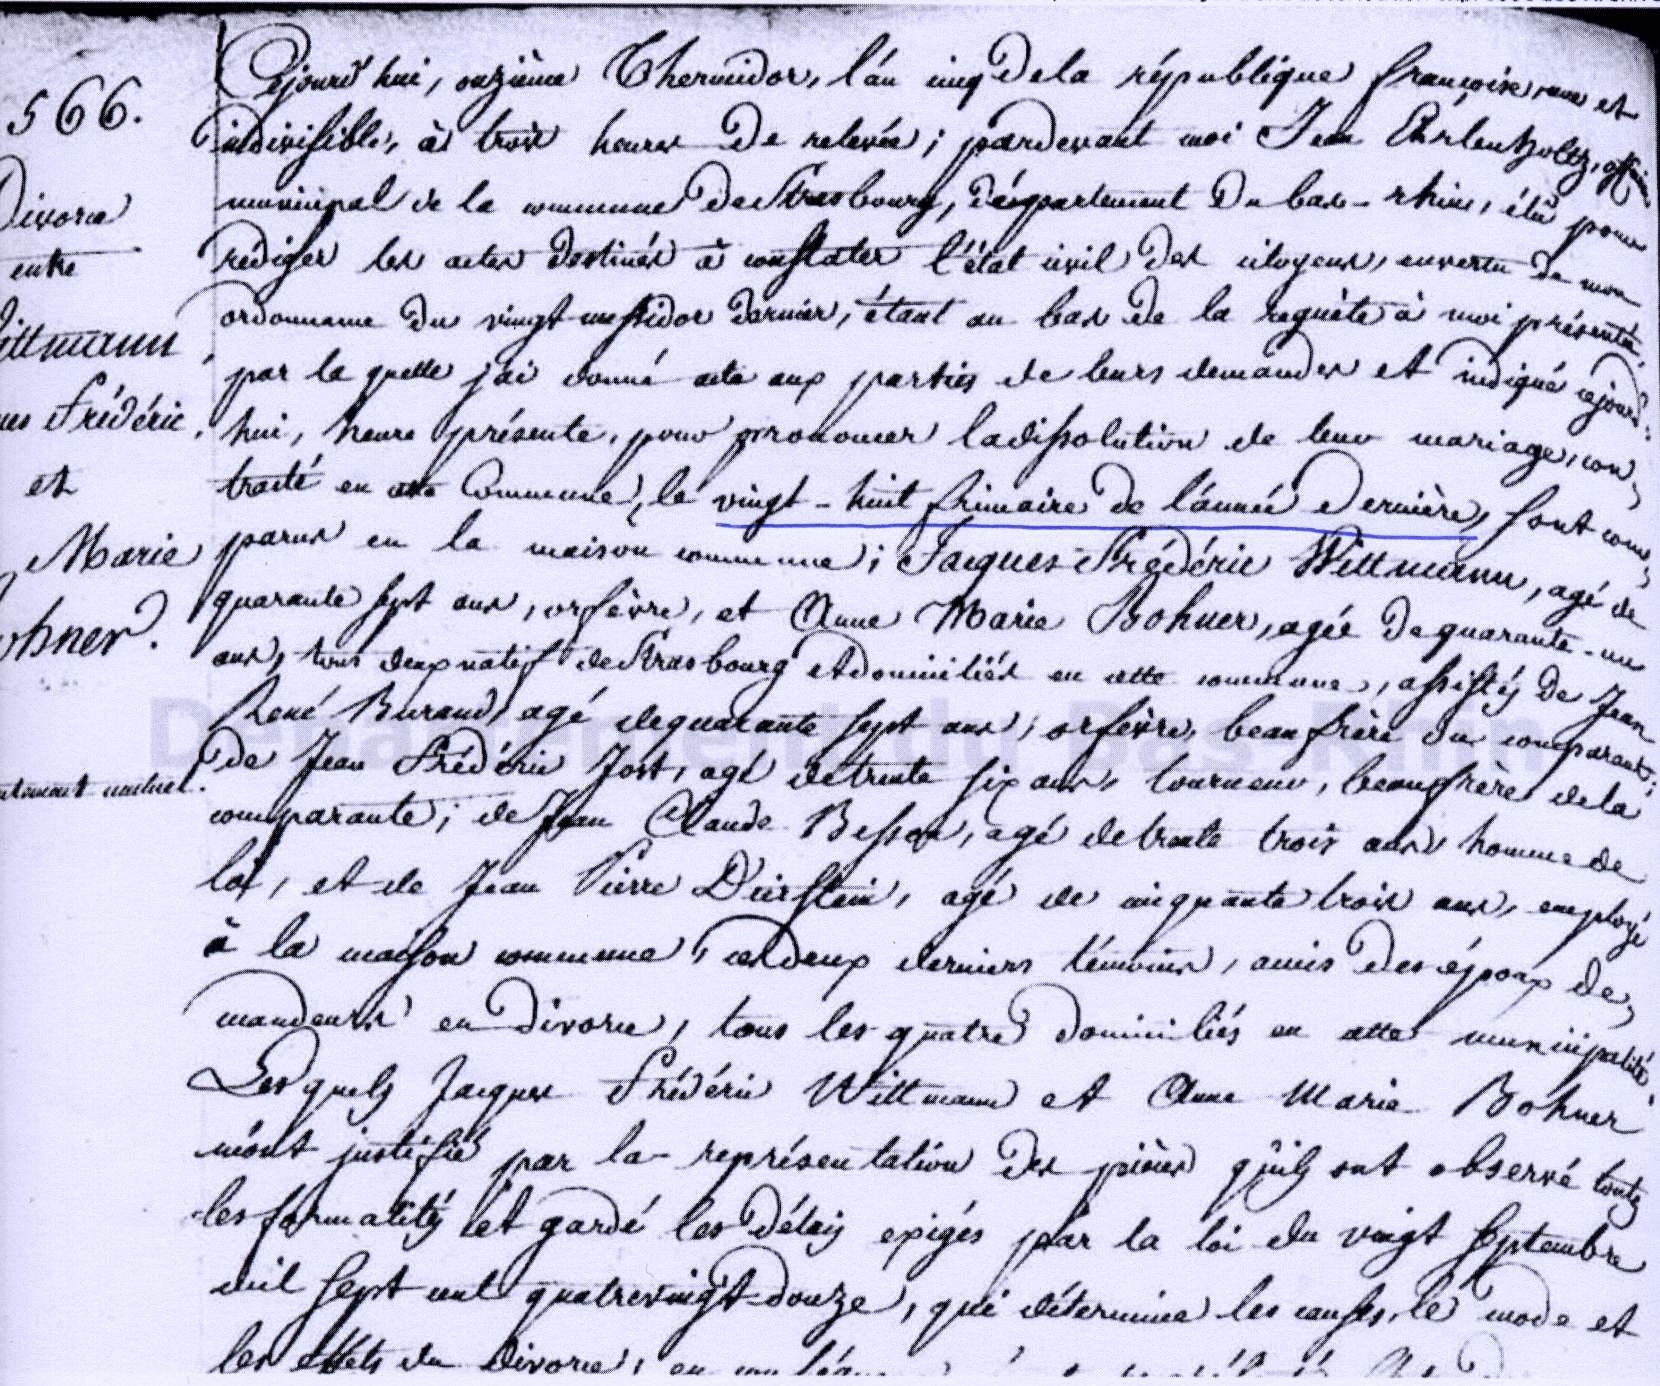 566.
Divorce
entre
ittmann
ues Frédéric
et
Marie
ohner.
ntement mutuel.
Cejourd'hui, onzième Thermidor, l'an cinq De la république françoise, une et
indivisible, à trois heures De relevée; pardevant moi Jean Ehrlenholtz, officier
municipal de la commune De Strasbourg, Département Du bas-rhin, élû pour
rédiger les actes Destinés à constater l'état civil Des citoyens, en vertu De mon
ordonnance Du vingt messidor Dernier, étant au bas De la requête à moi présentée,
par la quelle j'ai donné acte aux parties de leurs demandes et indiqué cejourd-
hui, heure présente, pour prononcer la dissolution de leur mariage, con-
tracté en cette Commune, le vingt-huit frimaire De l'année Dernière, sont com-
parus en la maison commune; Jacques-Frédéric Wittmann, agé de
quarante sept ans, orfèvre, et Anne Marie Bohner, agée De quarante-un
ans, tous deux natif de Strasbourg et domiciliés en cette commune, assistés De Jean
René Buraud, agé de quarante sept ans, orfèvre, beaufrère du comparant;
De Jean Frédéric Jost, agé de trente six ans, tourneur, beaufrère de la
comparante; de Jean Claude Besson, agé de trente trois ans, homme de
loi, et de Jean Pierre Dürstein, agé de cinquante trois ans, employé
à la maison commune, ces deux derniers témoins, amis Des époux De-
mandeurs en Divorce, tous les quatre Domiciliés en cette municipalité
Lesquels Jacques Frédéric Wittmann et Anne Marie Bohner
m'ont justifié par la représentation Des pièces qu'ils ont observé toutes
les formalités et gardé les Délais exigés par la loi du vingt septembre
mil sept cent quatrevingt-douze, qui détermine les causes, le mode et
les effets du Divorce, en
Département du Bas-Rhin